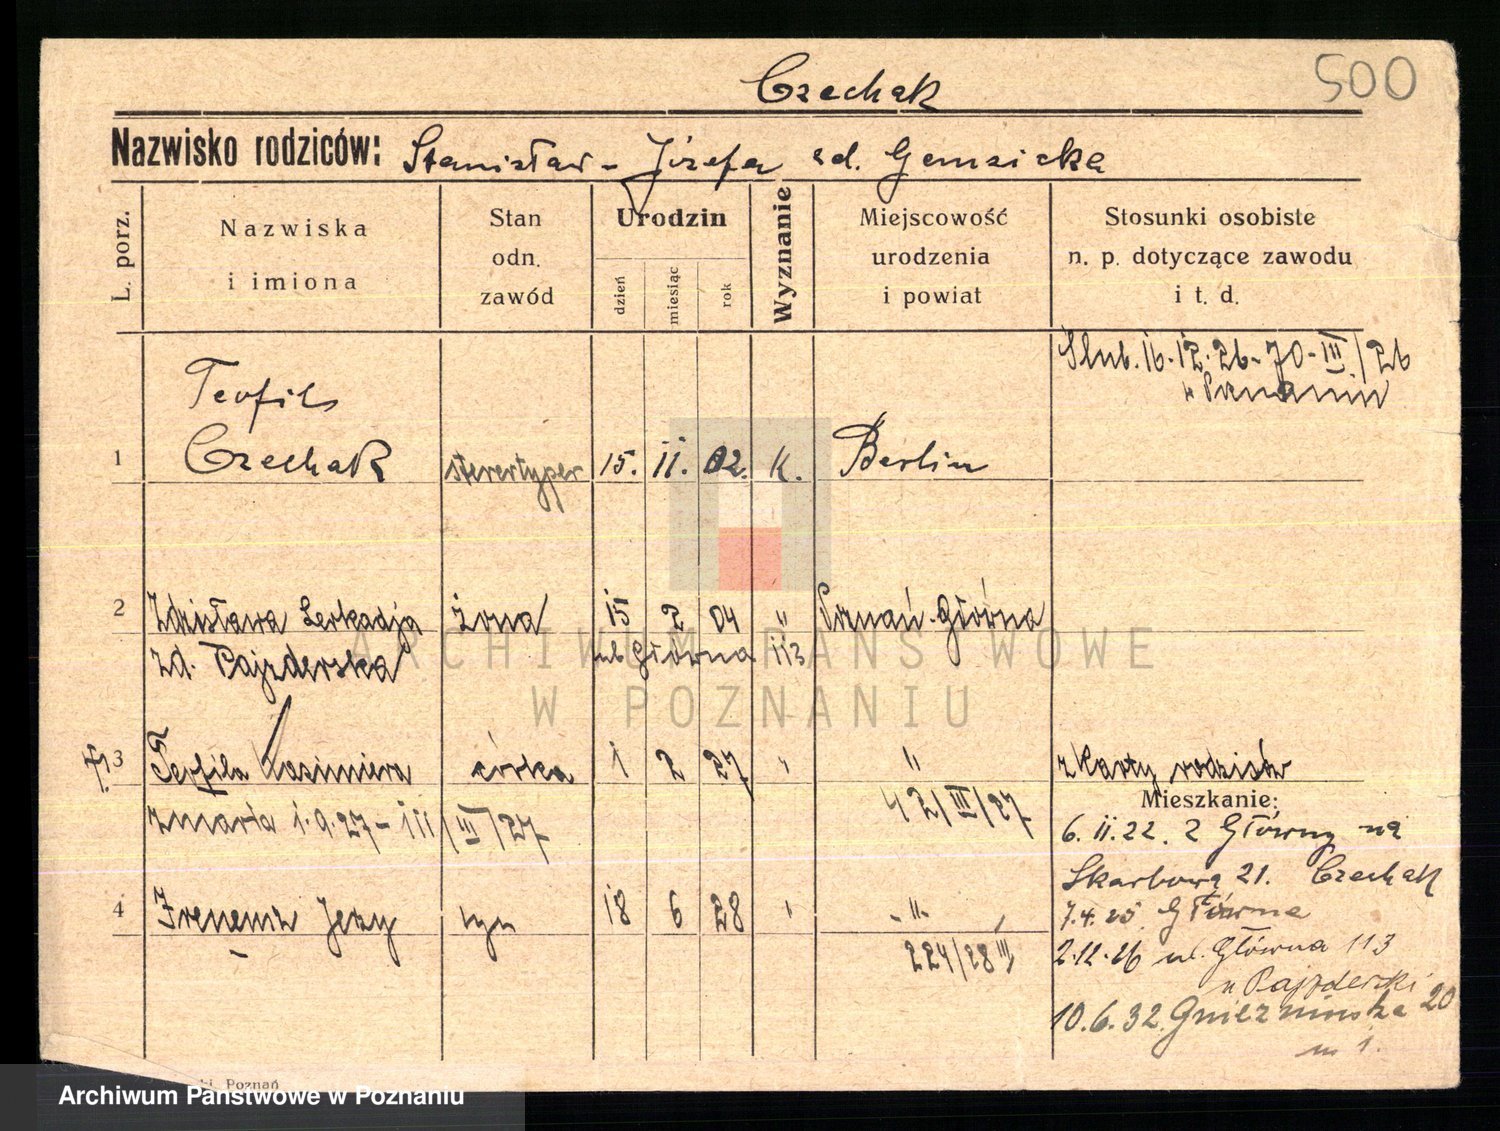 500
Czechak
Nazwisko rodziców: Stanisław - Józefa zd. Gemzicka
L. porz.
Nazwiska i imiona
Stan odn. zawód
Urodzin
dzień
miesiąc
rok
Wyznanie
Miejscowość urodzenia i powiat
Stosunki osobiste n. p. dotyczące zawodu i t. d.
Ślub. 16.12.26 - 70 - III/26
w Poznaniu
Teofil
1 Czechak stereotyper 15. 11. 02. K. Berlin
2 Zdzisława Leokadja żona 15 2 04 " Poznań-Główna
zd. Pajzderska ul Główna 113
3 Teofila Kazimiera córka 1 2 27 " " z karty rodziców
42/III/27
zmarła 1.9.27 - 111/III/27
Mieszkanie:
6.11.22. z Główny na
Skarbową 21. Czechak
4 Ireneusz Jerzy syn 18 6 28 " -"-
7.4.25. Główna
224/28 III
2.12.26 ul. Główna 113
u Pajzderski
10.6.32. Gnieźnieńska 20
m 1.
Poznań
ARCHIWUM PAŃSTWOWE
W POZNANIU
Archiwum Państwowe w Poznaniu